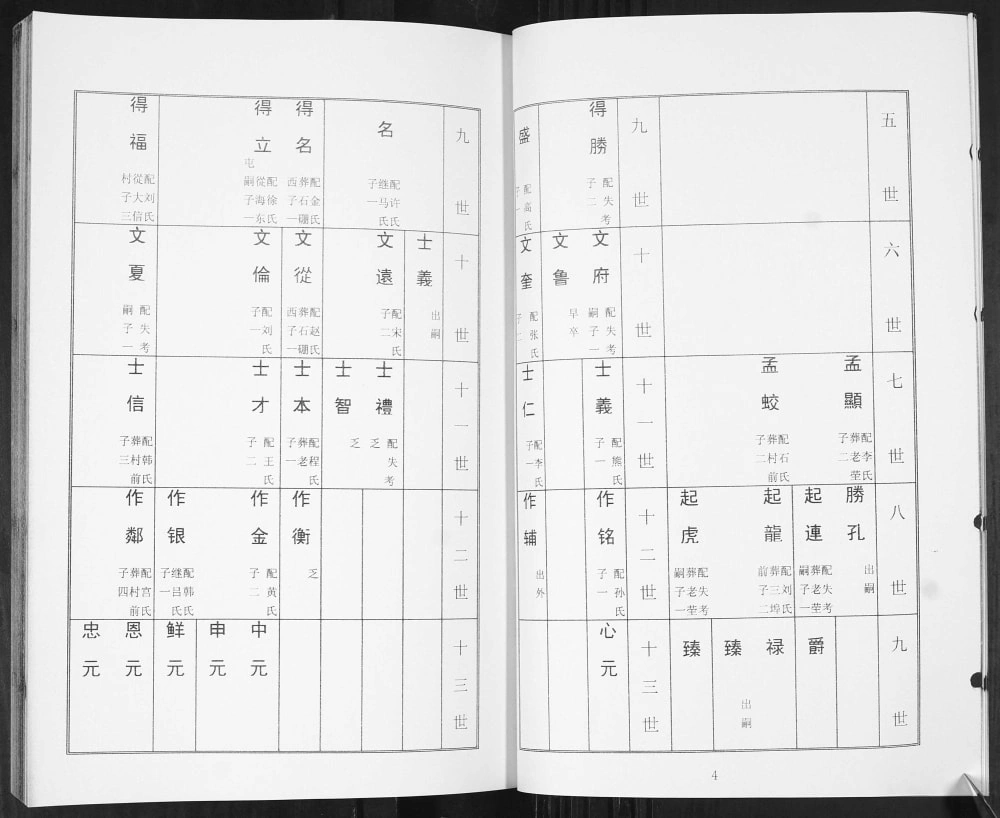 五世
六世
七世
孟顯
配李氏
葬老茔
子二
孟蛟
配石氏
葬村前
子二
八世
勝孔
出嗣
起連
配失考
葬老茔
嗣子一
起龍
配刘氏
葬三埠
前子二
起虎
配失考
葬老茔
嗣子一
九世
爵
禄
臻
出嗣
臻
九世
得勝
配失考
子二
盛
配高氏
子一
十世
文府
配失考
嗣子一
文鲁
早卒
文奎
配张氏
子二
十一世
士義
配熊氏
子一
士仁
配李氏
子一
十二世
作铭
配孙氏
子一
作辅
出外
十三世
心元
4
九世
名
配许氏
继马氏
子一
得名
配金氏
葬石硼
西子一
得立
配徐氏
從海东
屯嗣子一
得福
配刘氏
從大信
村子三
十世
士義
出嗣
文遠
配宋氏
子二
文從
配赵氏
葬石硼
西子一
文倫
配刘氏
子一
文夏
配失考
嗣子一
十一世
士禮
配失考
乏
士智
乏
士本
配程氏
葬老
子一
士才
配王氏
子二
士信
配韩氏
葬村前
子三
十二世
作衡
乏
作金
配黄氏
子二
作银
配韩氏
继吕氏
子一
作鄰
配宫氏
葬村前
子四
十三世
中元
申元
鲜元
恩元
忠元